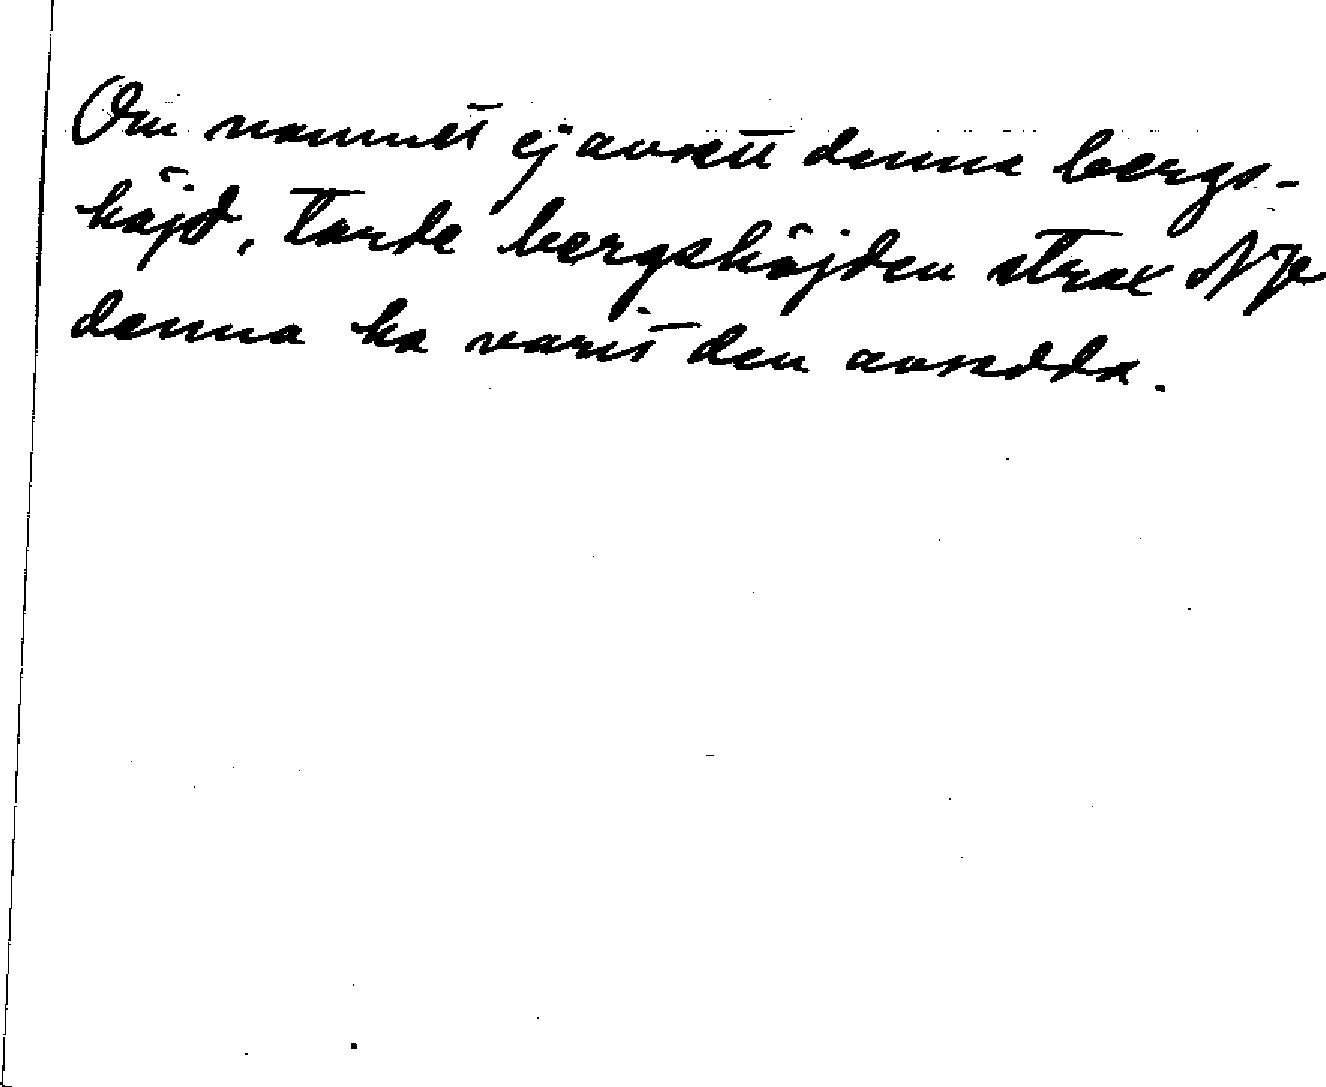 Om namnet ej avsett denna bergs-
höjd, torde bergshöjden strax N Je
denna ha varit den avsedda.